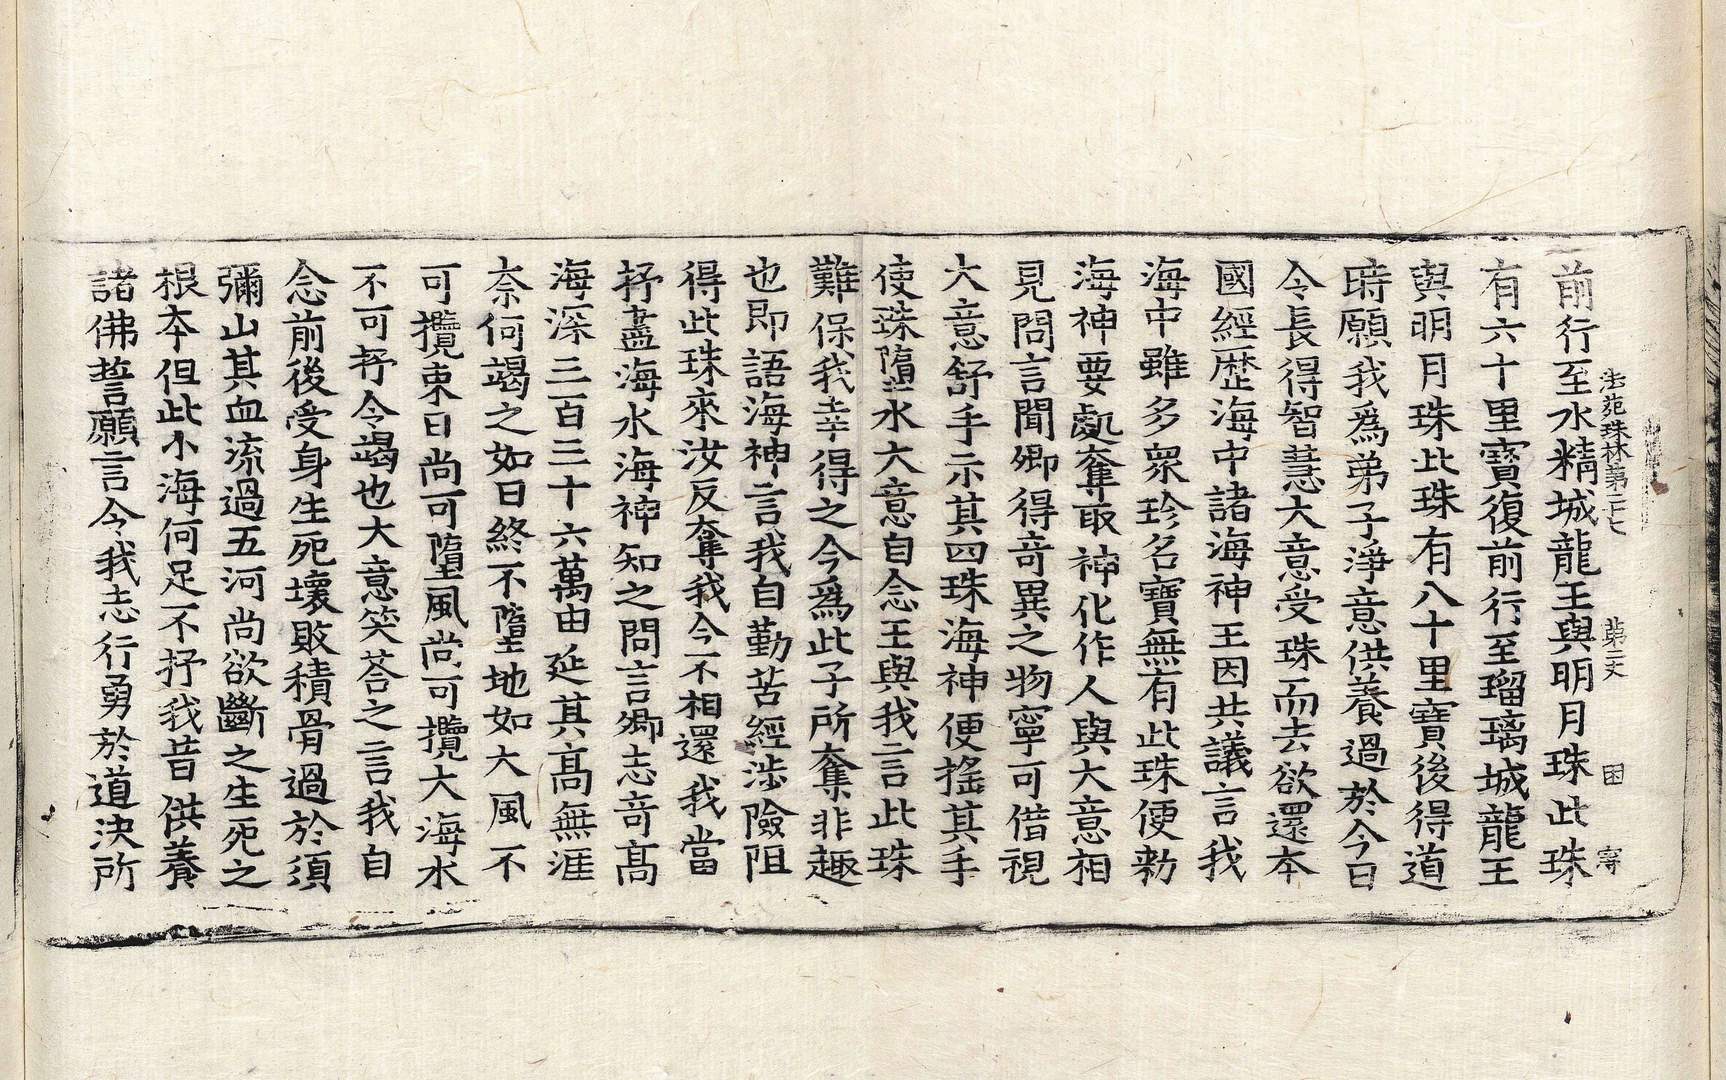 法苑珠林第二十七 第三丈 困 寧
前行至水精城龍王與明月珠此珠
有六十里寶復前行至瑠璃城龍王
與明月珠此珠有八十里寶後得道
時願我爲弟子淨意供養過於今日
令長得智慧大意受珠而去欲還本
國經歷海中諸海神王因共議言我
海中雖多衆珍名寶無有此珠便勑
海神要處奪取神化作人與大意相
見問言聞卿得竒異之物寧可借視
大意舒手示其四珠海神便搖其手
使珠墮水大意自念王與我言此珠
難保我幸得之今爲此子所奪非趣
也即語海神言我自勤苦經涉險阻
得此珠來汝反奪我今不相還我當
抒盡海水海神知之問言卿志竒髙
海深三百三十六萬由延其髙無涯
柰何竭之如日終不墮地如大風不
可攬束日尚可墮風尚可攬大海水
不可抒令竭也大意笑荅之言我自
念前後受身生死壞敗積骨過於須
彌山其血流過五河尚欲斷之生死之
根夲但此小海何足不抒我昔供養
諸佛誓願言令我志行勇於道決所